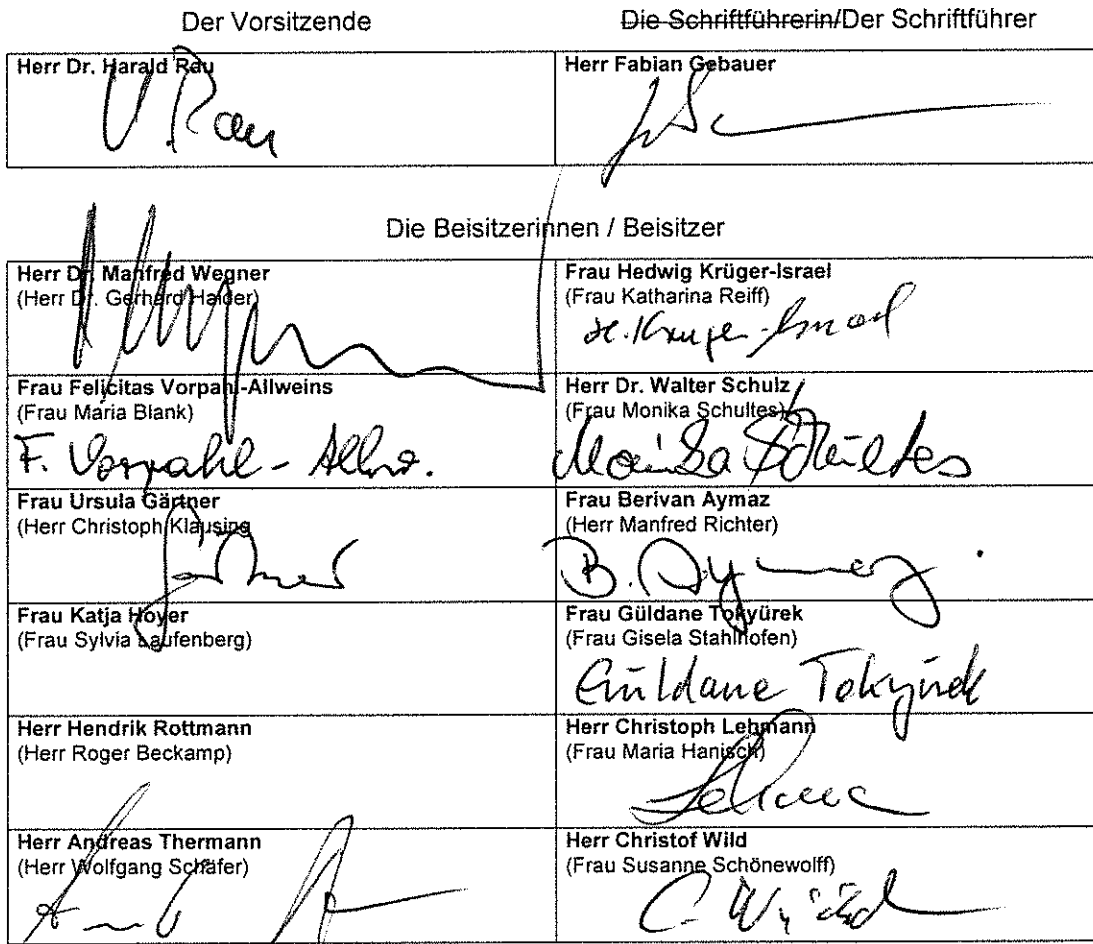 Der Vorsitzende
Die Schriftführerin/Der Schriftführer
Herr Dr. Harald Rau
Herr Fabian Gebauer
Die Beisitzerinnen / Beisitzer
Herr Dr. Manfred Wegner
(Herr Dr. Gerhard Haider)
Frau Hedwig Krüger-Israel
(Frau Katharina Reiff)
H. Krüger-Israel
Frau Felicitas Vorpahl-Allweins
(Frau Maria Blank)
F. Vorpahl-Allw.
Herr Dr. Walter Schulz
(Frau Monika Schultes)
Monika Schultes
Frau Ursula Gärtner
(Herr Christoph Klausing
Frau Berivan Aymaz
(Herr Manfred Richter)
B. Aymaz
Frau Katja Hoyer
(Frau Sylvia Laufenberg)
Frau Güldane Tokyürek
(Frau Gisela Stahlhofen)
Güldane Tokyürek
Herr Hendrik Rottmann
(Herr Roger Beckamp)
Herr Christoph Lehmann
(Frau Maria Hanisch)
Herr Andreas Thermann
(Herr Wolfgang Schäfer)
Herr Christof Wild
(Frau Susanne Schönewolff)
C. Wild